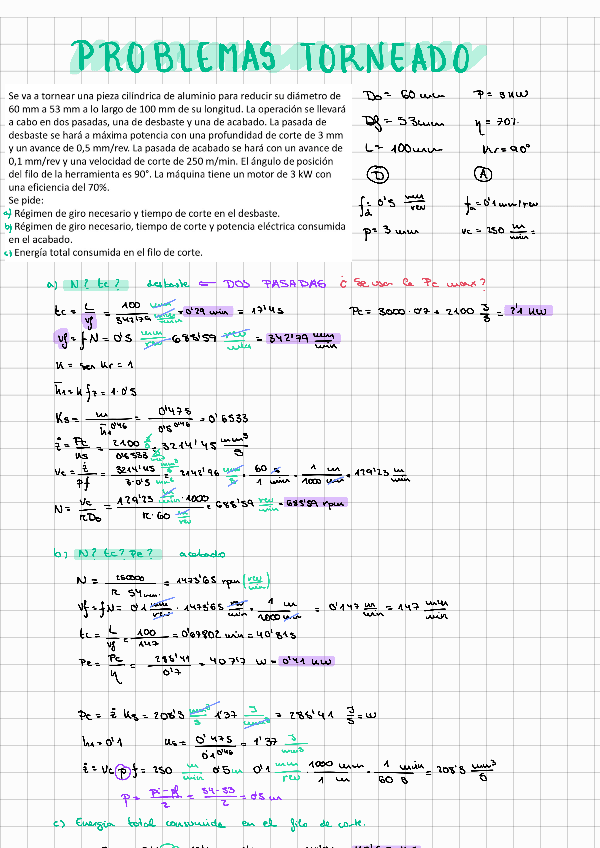 PROBLEMAS TORNEADO
Se va a tornear una pieza cilíndrica de aluminio para reducir su diámetro de
60 mm a 53 mm a lo largo de 100 mm de su longitud. La operación se llevará
a cabo en dos pasadas, una de desbaste y una de acabado. La pasada de
desbaste se hará a máxima potencia con una profundidad de corte de 3 mm
y un avance de 0,5 mm/rev. La pasada de acabado se hará con un avance de
0,1 mm/rev y una velocidad de corte de 250 m/min. El ángulo de posición
del filo de la herramienta es 90°. La máquina tiene un motor de 3 kW con
una eficiencia del 70%.
Se pide:
a) Régimen de giro necesario y tiempo de corte en el desbaste.
b) Régimen de giro necesario, tiempo de corte y potencia eléctrica consumida
en el acabado.
c) Energía total consumida en el filo de corte.
D0 = 60 mm P = 3 kW
Df = 53 mm η = 70%
L = 100 mm κr = 90°
D A
fd = 0'5 mm/rev fa = 0'1 mm/rev
p = 3 mm vc = 250 m/min =
a) N? tc? desbaste ⇐ DOS PASADAS ¿Se usa la Pc max?
tc = L/vf = 100 mm / 342'79 mm/min = 0'29 min = 17'4s
Pc = 3000 · 0'7 = 2100 J/s = 2'1 kW
vf = f N = 0'5 mm/rev 685'59 rev/min = 342'79 mm/min
K = sen κr = 1
h1 = K f z = 1 · 0'5
Ks = m / h1^0'46 = 0'475 / 0'5^0'46 = 0'6533
ż = Pc/Ks = 2100 / 0'6533 = 3214'45 mm³/s
vc = ż / pf = 3214'45 mm³/s / 3·0'5 mm² = 2142'96 mm/s · 60 s/1 min · 1 m/1000 mm = 129'23 m/min
N = vc / πD0 = 129'23 m/min · 1000 / π · 60 mm/rev = 685'59 rev/min = 685'59 rpm
b) N? tc? Pe? acabado
N = 250000 / π 54 mm = 1473'65 rpm (rev/min)
vf = f N = 0'1 mm/rev · 1473'65 rev/min · 1 m/1000 mm = 0'147 m/min = 147 mm/min
tc = L/vf = 100/147 = 0'67802 min = 40'81s
Pe = Pc/η = 285'41/0'7 = 407'7 W = 0'41 kW
Pc = ż Ks = 208'3 mm³/s 1'37 J/mm³ = 285'41 J/s = W
h1 = 0'1 Ks = 0'475 / 0'1^0'46 = 1'37 J/mm³
ż = vc p f = 250 m/min 0'5 m 0'1 mm/rev · 1000 mm/1 m · 1 min/60 s = 208'3 mm³/s
p = Di - Df / 2 = 54 - 53 / 2 = 0'5 m
c) Energía total consumida en el filo de corte.